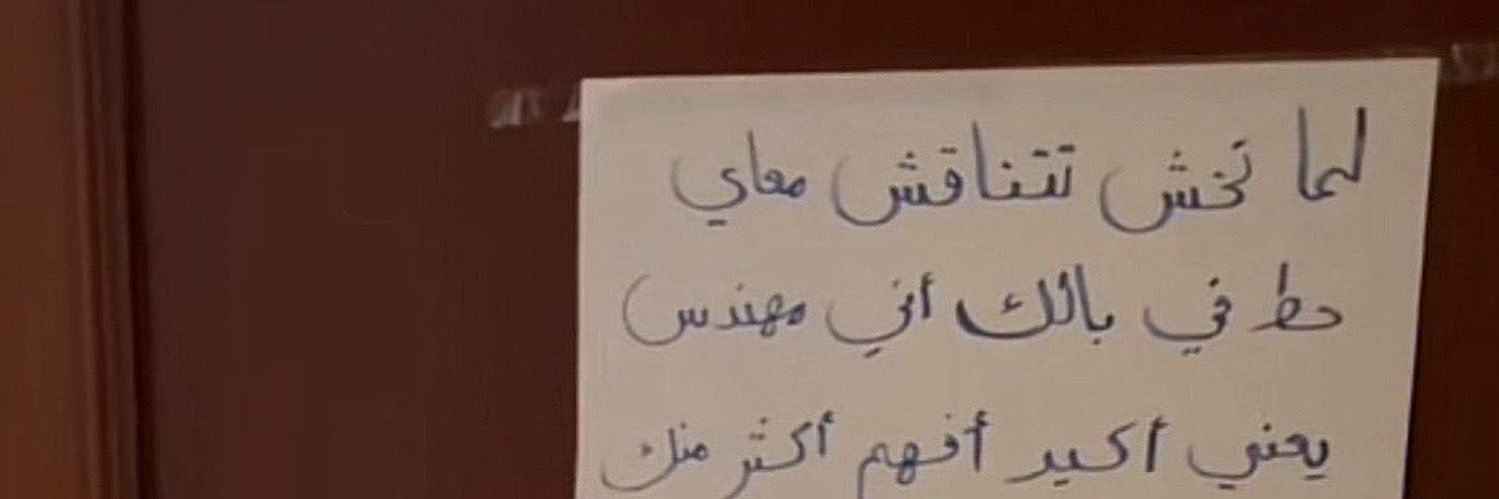 لما تخش تتناقش معاي
حط في بالك أني مهندس
يعني أكيد أفهم أكثر منك